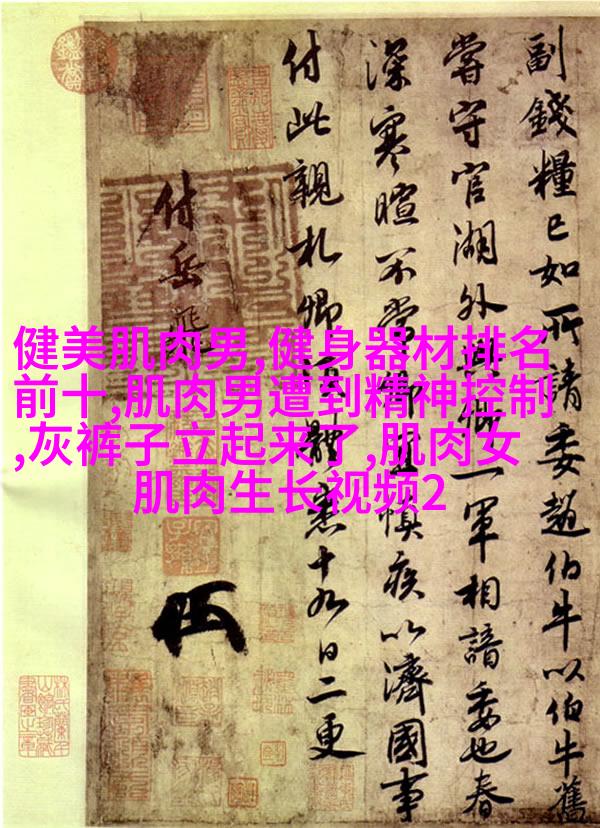 健美肌肉男,健身器材排名
前十,肌肉男遭到精神控制
,灰裤子立起来了,肌肉女
肌肉生长视频2
副錢糧已如所請委趙伯牛以伯牛舊
嘗守官湖外與卿一軍相諳委也春
深寒暄不常卿宜慎疾以濟國事
付此親札卿須體悉十九日二更
付岳飛